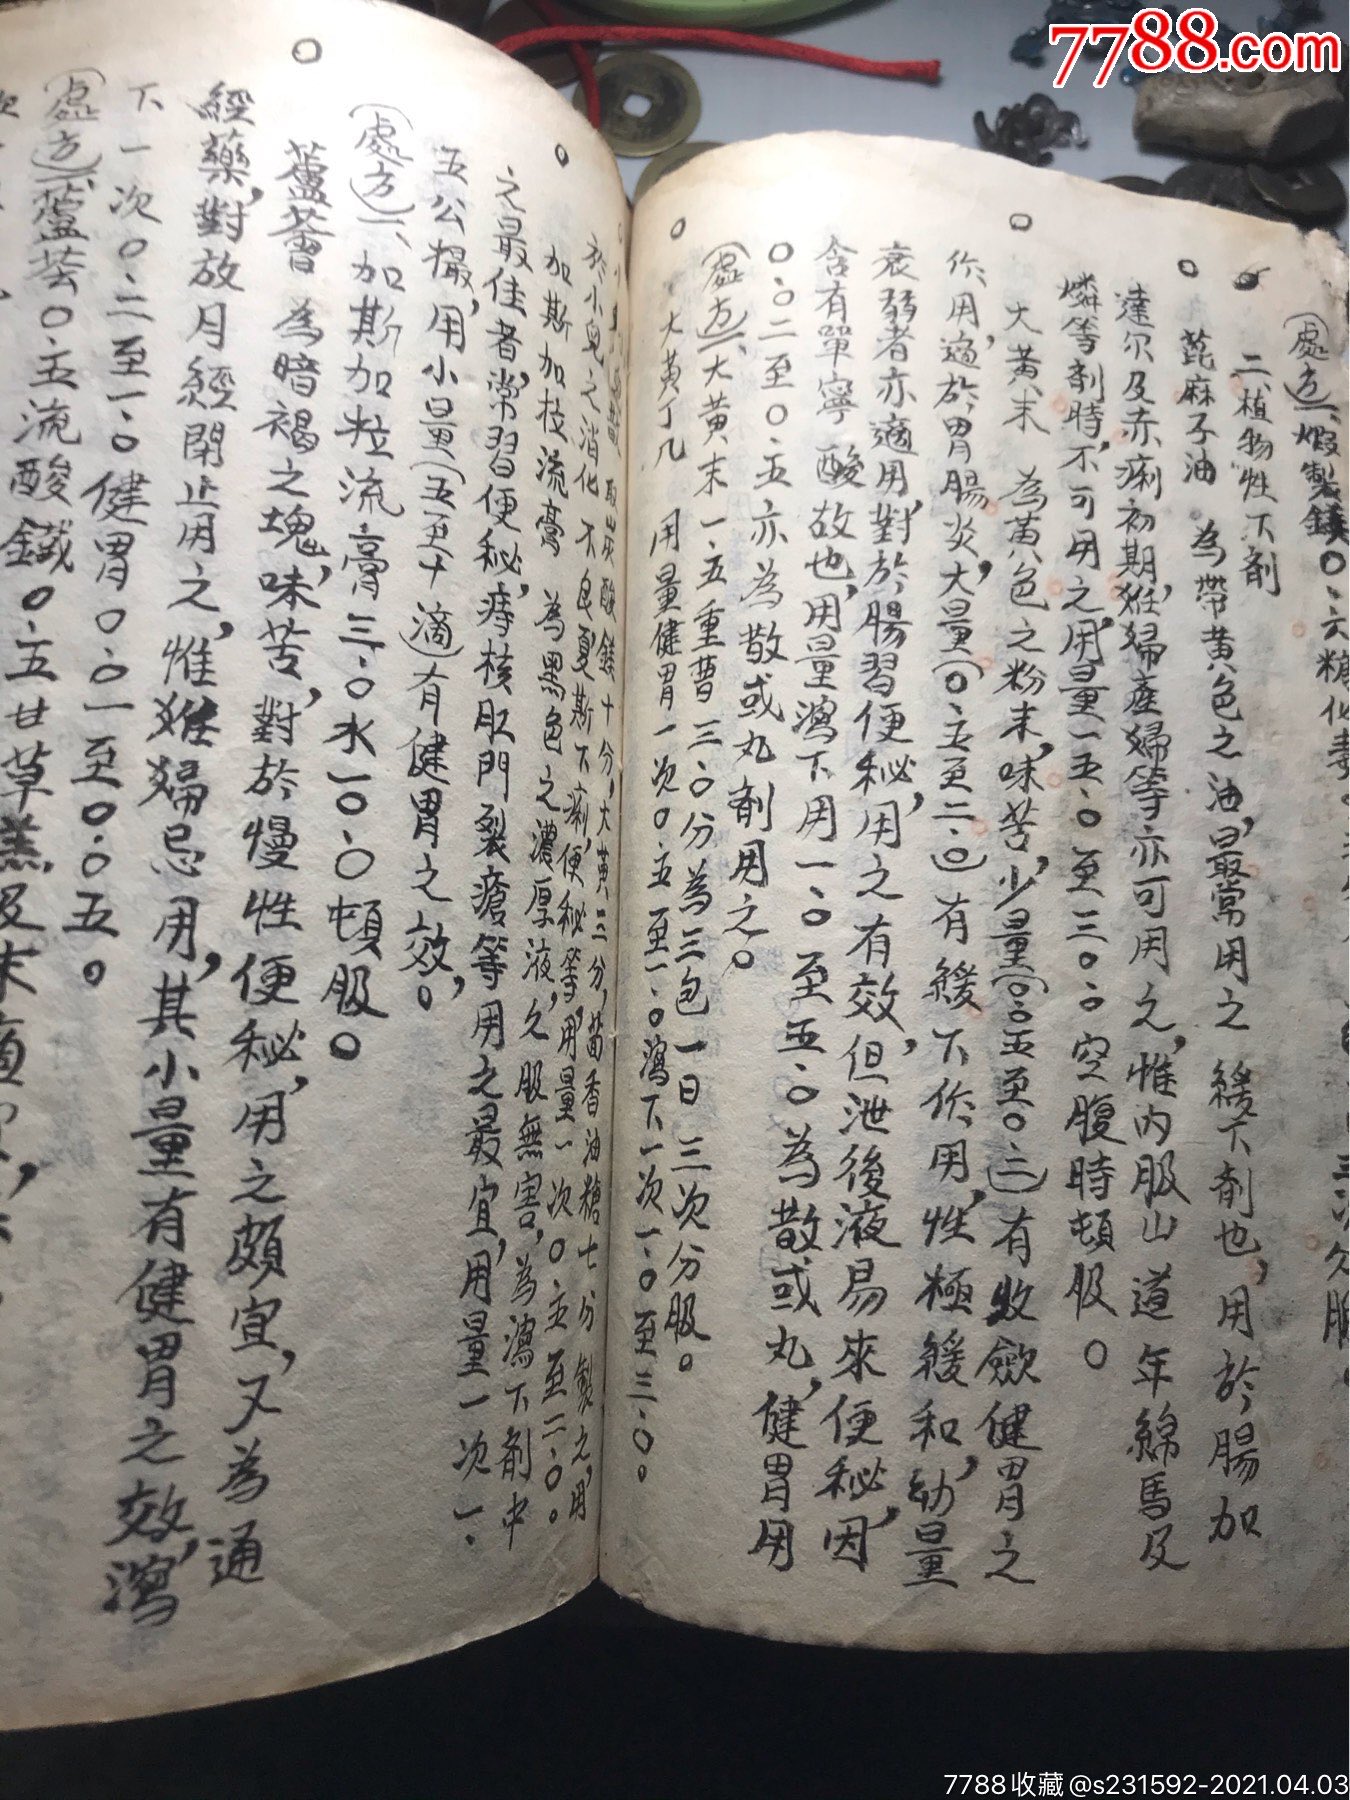 7788.com
(處方)一、煅製鎂〇、六糖化
二、植物性下劑
蓖麻子油 為帶黃色之油,最常用之 緩下劑也,用於腸加
達尔及赤痢初期,姙婦產婦等亦可用之,惟內服山道年綿馬及
燐等劑時,不可用之,用量一五、〇至三〇、〇空腹時頓服。
大黃末 為黃色之粉末,味苦,少量(〇、〇五至〇、三)有收歛健胃之
作用,適於胃腸炎,大量(〇、五至二、〇)有緩下作用,性極緩和,幼量
衰弱者亦適用,對於腸習便秘,用之有效,但泄後液易來便秘,因
含有單寧酸故也,用量瀉下用一、〇至五、〇為散或丸,健胃用
〇、〇二至〇、五亦為散或丸劑用之。
(處方)一、大黃末一、五重曹三、〇分為三包一日三次分服。
大黃丁几 用量健胃一次〇、五至一、〇瀉下一次一、〇至三、〇。
酸鎂十分,大黃三分,茴香油糖七分製之,用
於小兒之消化不良夏斯下痢,便秘等,用量一次〇、五至二、〇。
加斯加枝流膏 為黑色之濃厚液,久服無害,為瀉下劑中
之最佳者,常習便秘,痔核肛門裂瘡等用之最宜,用量一次一、
五公撮,用小量(五至十滴)有健胃之效。
(處方)一、加斯加粒流膏三、〇水一〇、〇頓服。
蘆薈 為暗褐之塊,味苦,對於慢性便秘,用之頗宜,又為通
經藥,對放月經閉止用之,惟姙婦忌用,其小量有健胃之效,瀉
下一次〇、二至一、〇健胃〇、〇一至〇、〇五。
(處方)一、蘆荟〇、五流酸鐵〇、五甘草羔及末
7788收藏@s231592-2021.04.03